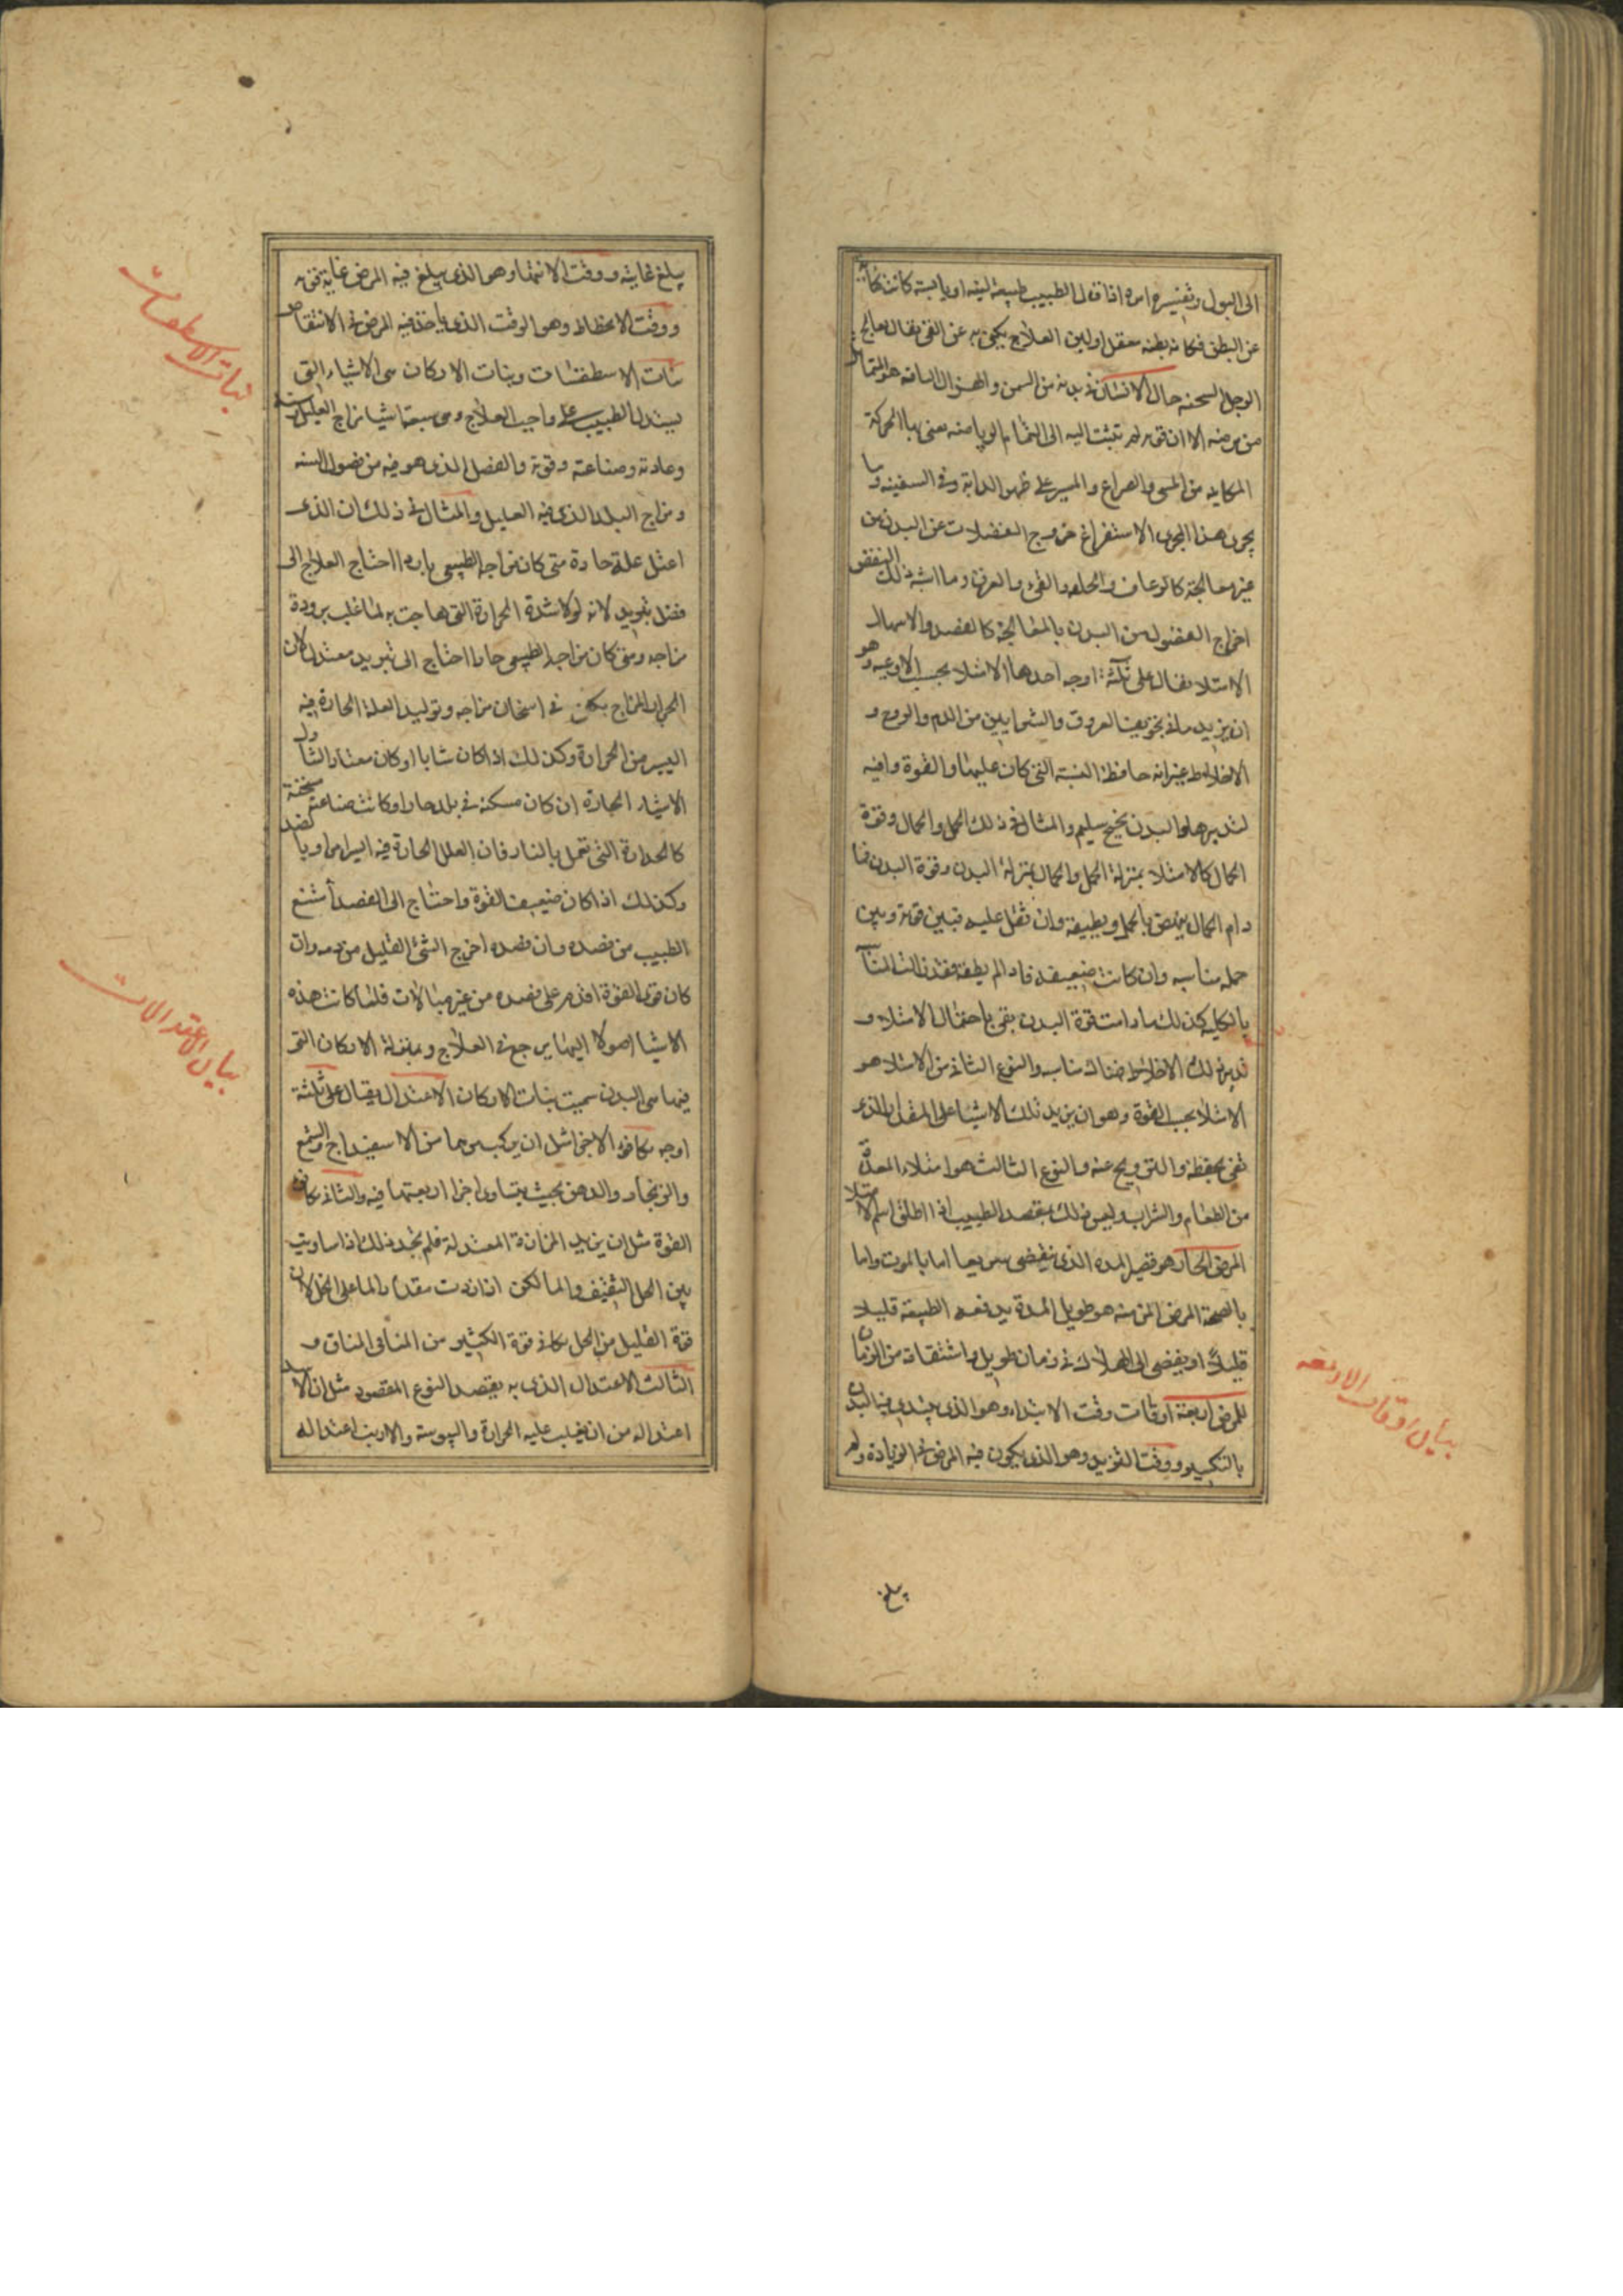 الى البول وتفسيره امره اذا قال الطبيب طبيعة لينه او يابسة كانت كناية
عن البطن فكانه بطنه معقل او لين العلاج يكنى به عن القى يقال يعالج
الرجل السحنه حال الانسان في بدنه من السمن والهزال الناقه هو المتماثل
من مرضه الا ان قوته لم تثبت اليه الى التمام الرياضه يعنى بها الحركة
المكانيه من المشى والصراع والمسير على ظهر الدابة وفى السفينه وما
يجرى هذا المجرى الاستفراغ خروج الفضلات عن البدن من
غير معالجة كالرعاف والحلفه والقىء والعرق وما اشبه ذلك النفض
اخراج الفضول من البدن بالمعالجة كالفصد والاسهال
الامتلا يقال على ثلثة اوجه احدها الامتلا بحسب الاوعيه وهو
ان يزيد ما فى تجويف العروق والشرايين من الدم والروح و
الاخلاط غير انه حافظة النسبة التى كان عليها والقوة وافيه
لتدبرها والبدن صحيح سليم والمثال فى ذلك الحمل والحمال وقوة
الحمال كالامتلا بمنزلة الحمل والحمال بمنزلة البدن وقوة البدن فما
دام الحمال ينهض بالحمل ويطيقه وان ثقل عليه فبين قوته وبين
حمله مناسبه وان كانت ضعيفه فاذا لم يطقه فقدت المناسبة
بالكليه كذلك ما دامت قوة البدن يفى باحتمال الامتلاء و
تدبير تلك الاخلاط فهناك مناسبه والنوع الثانى من الامتلا هو
الامتلا بحسب القوة وهو ان يزيد تلك الاشيا على المقدار الذى
تفى بحفظه والترويح عنه والنوع الثالث هو امتلاء المعدة
من الطعام والشراب وليس ذلك بقصد الطبيب اذا اطلق اسم الامتلا
المرض الحاد هو قصير المدة الذى ينقضى سريعا اما بالموت واما
بالصحة المرض المزمن هو طويل المدة يدفعه الطبيعة قليلا
قليلاً او يفضى الى الهلاك فى زمان طويل واشتقاقه من الزمان
للمرض اربعة اوقات وقت الابتداء وهو الذى يبتدى فيه البدن
بالتكسير ووقت التزيد وهو الذى يكون فيه المرض فى الزيادة ولم
بيان اوقات الاربعه
يبلغ
يبلغ غايته ووقت الانتها وهو الذى يبلغ فيه المرض غاية قوته
ووقت الانحطاط وهو الوقت الذى ياخذ فيه المرض فى الانتقاص
بنات الاسطقسات وبنات الاركان هى الاشياء التى
يستدل الطبيب على واجب العلاج وهى سبعة اشيا مزاج العليل وسنه
وعادته وصناعته وقوته والفصل الذى هو فيه من فصول السنه
ومزاج البلد الذى فيه العليل والمثال فى ذلك ان الذى
اعتل علة حادة متى كان مزاجه الطبيعى باردا احتاج العلاج الى
فضل تبريد لانه لولا شدة الحرارة التى هاجت به لما غلب برودة
مزاجه ومتى كان مزاجه الطبيعى حارا احتاج الى تبريد معتدل لان
الحار المزاج يكفى فى اسخان مزاجه وتوليد العلة الحارة فيه
اليسير من الحرارة وكذلك اذا كان شابا او كان معتاد التناول
الاشياء الحارة ان كان مسكنه فى بلد حار او كانت صناعته مسخنة
كالحدادة التى تعمل بالنار فان العلل الحارة فيه ايسر امرا وبالضد
وكذلك اذا كان ضعيف القوة واحتاج الى الفصد امتنع
الطبيب من فصده وان فصده اخرج الشئ القليل من دمه وان
كان قوى القوة اقدم على فصده من غير مبالات فلما كانت هذه
الاشيا اصولا اليها يرجع فى العلاج وبمنزلة الاركان التى
فيها هى البدن سميت بنات الاركان الاعتدال يقال على ثلثة
اوجه تكافؤ الاجزا مثل ان يركب مرهما من الاسفيداج والشمع
والزنجار والدهن بحيث يتساوى اجزا اربعتها فيه والثانى تكافى
القوة مثل ان يزيد المزازة المعتدلة فلم تجد ذلك اذا ساويت
بين الخل الثقيف والما لكن اذا زدت مقدار الما على الخل لان
قوة القليل من الخل تكافى قوة الكثير من الما فى المذاق و
الثالث الاعتدال الذى به يقصد النوع المقصود مثل ان الاسد
اعتداله من ان يغلب عليه الحرارة واليبوسة والارنب اعتداله
بنات الاسطقسات
بيان الاعتدالات